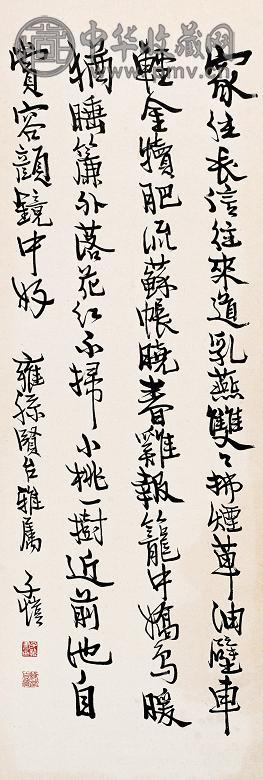 中华收藏网
家住長信往來道乳燕雙々拂煙草油壁車
輕金犢肥流蘇帳曉春雞報籠中嬌鳥暖
猶睡簾外落花紅不掃小桃一樹近前池自
賞容顏鏡中好 雍孫賢台雅屬 子愷